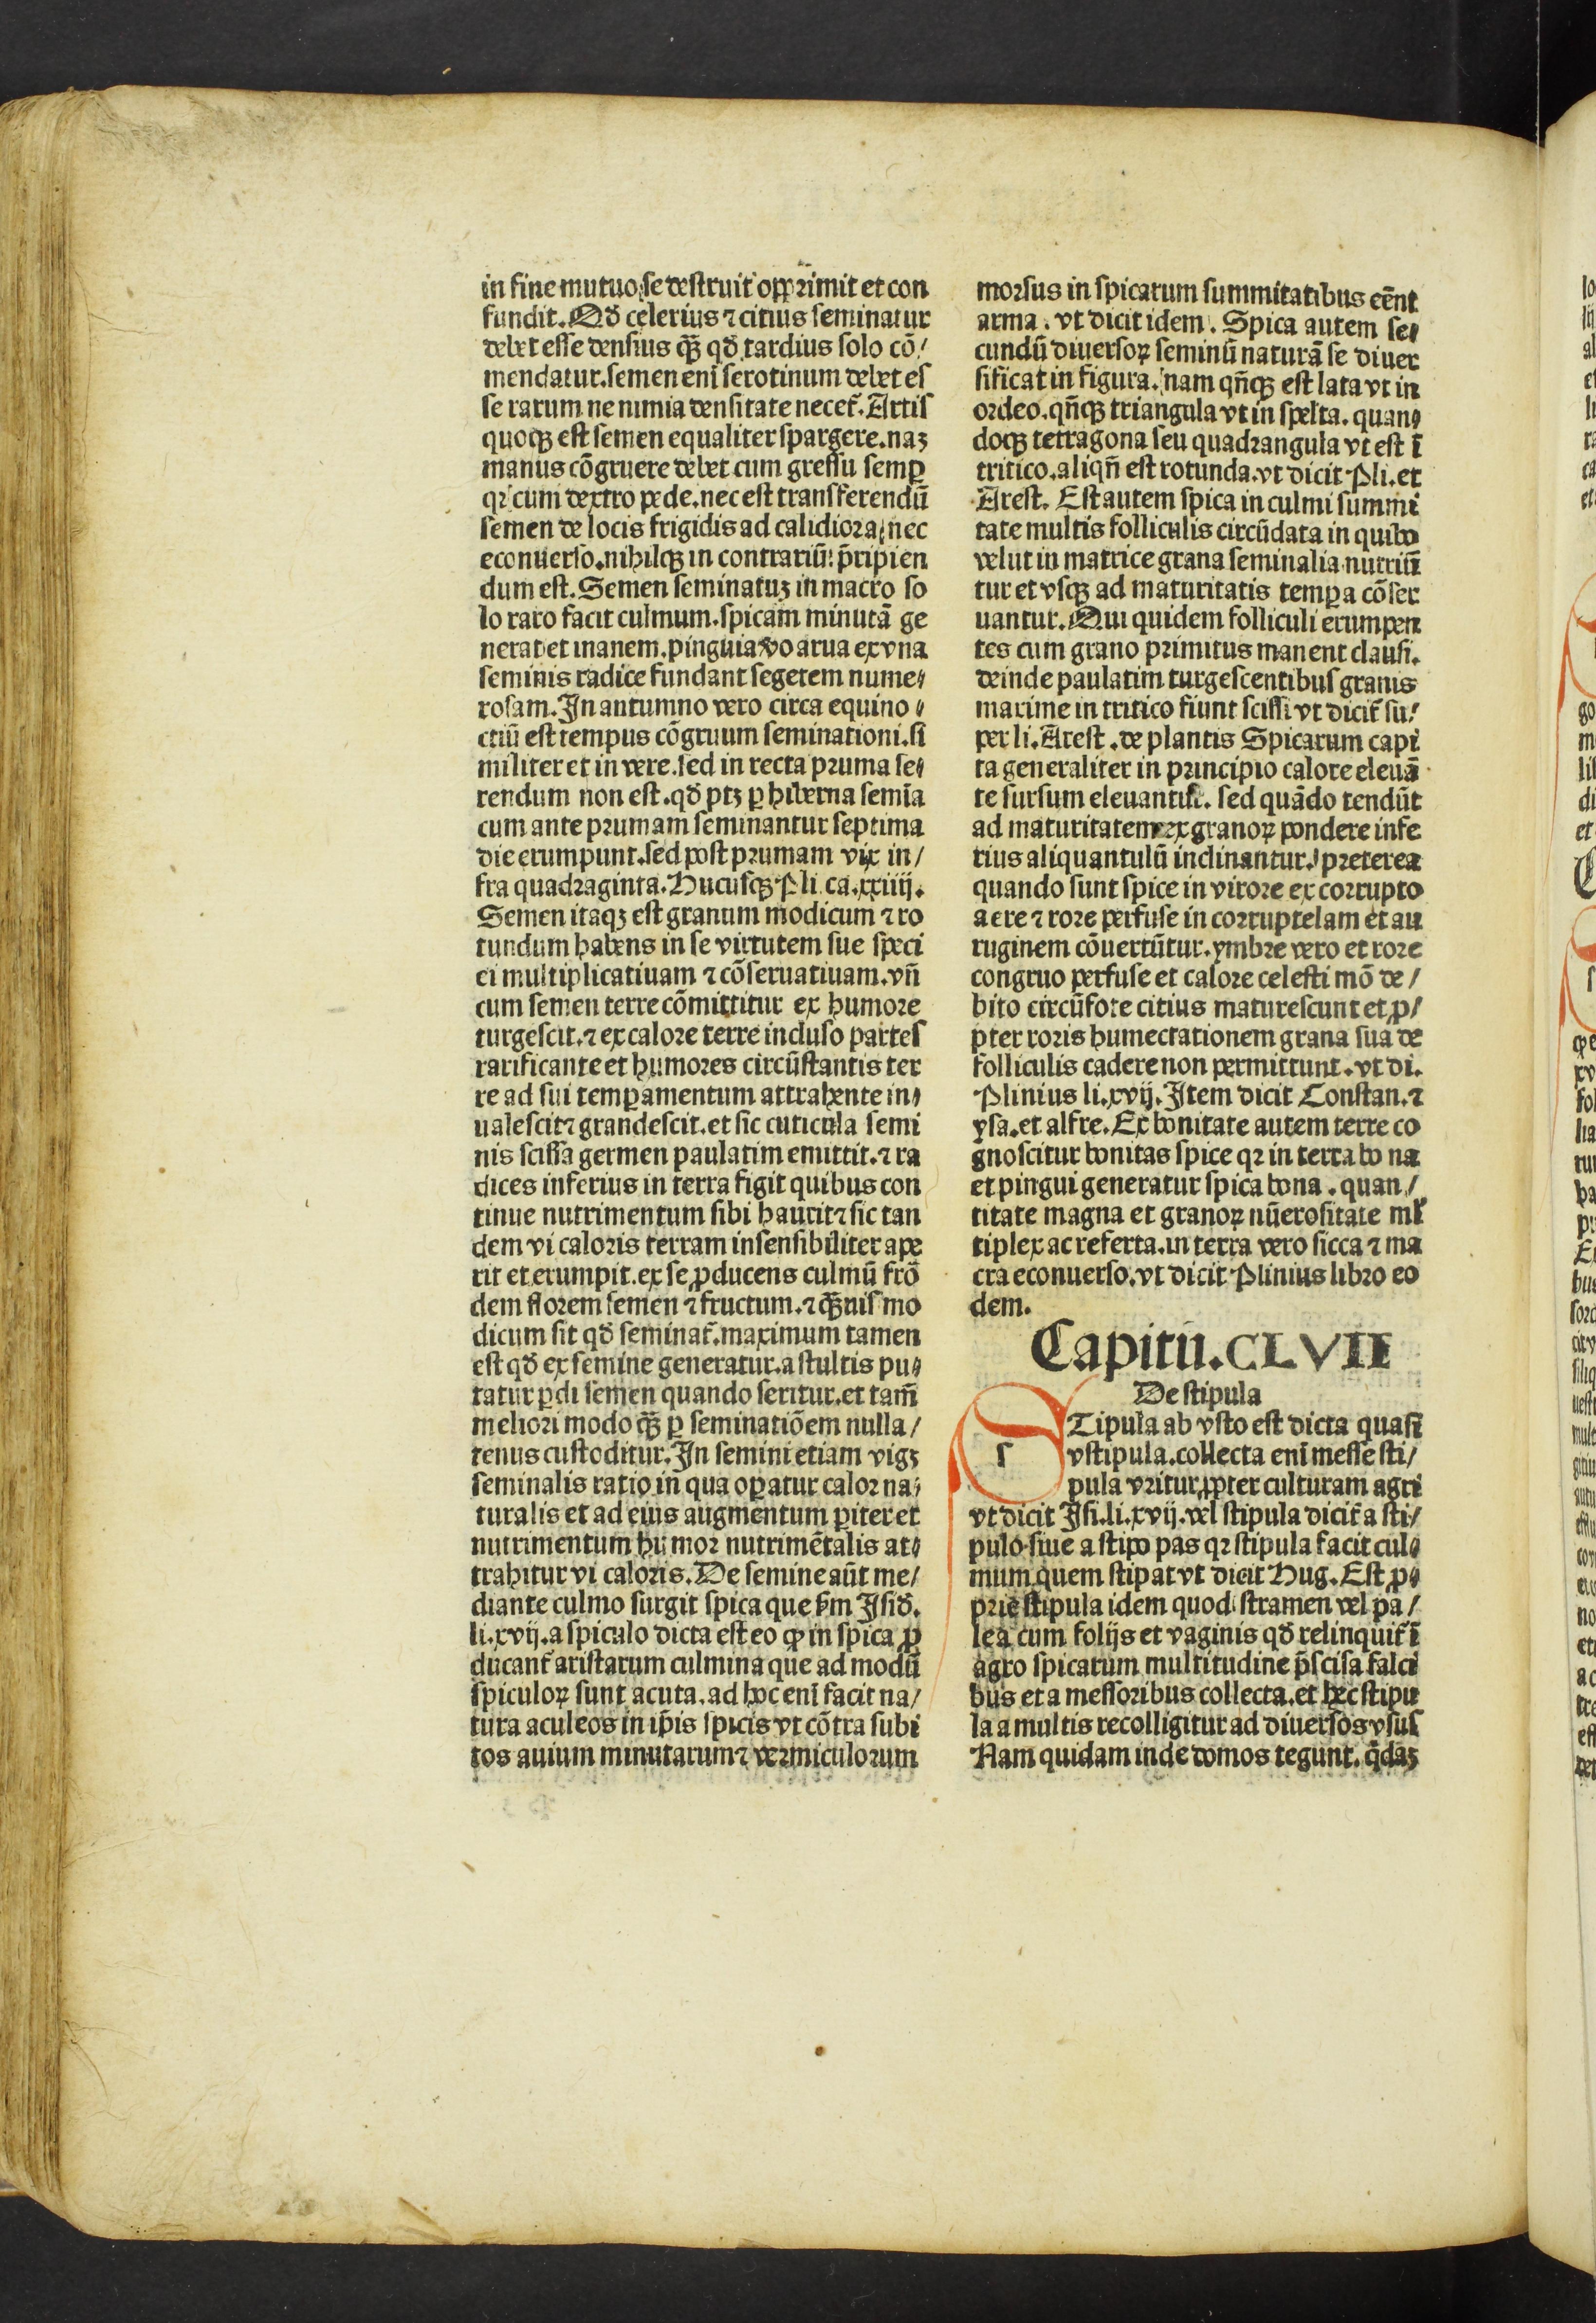 in fine mutuo se destruit opprimit et con
fundit. Qd̄ celerius ⁊ citius seminatur
debet esse densius q̄ꝫ qd̄ tardius solo cō/
mendatur. semen enī serotinum debet es
se rarum ne nimia densitate necet᷑. Artis
quoqꝫ est semen equaliter spargere. naꝫ
manus cōgruere debet cum gressu semꝑ
qꝛ cum dextro pede. nec est transferendū
semen de locis frigidis ad calidiora nec
econuerso. nihilqꝫ in contrariū p̄cipien
dum est. Semen seminatuꝫ in macro so
lo raro facit culmum. spicam minutā ge
nerat et inanem. pinguia v̄o arua ex vna
seminis radice fundant segetem nume/
rosam. In autumno vero circa equino/
ctiū est tempus cōgruum seminationi. si
militer et in vere. sed in recta pruma se/
rendum non est. qd̄ ptꝫ ꝑ hiberna semīa
cum ante prumam seminantur septima
die erumpunt. sed post prumam vix in/
fra quadraginta. Hucusqꝫ Pli. ca. xxiiij.
Semen itaqꝫ est granum modicum ⁊ ro
tundum habens in se virtutem sue speci
ei multiplicatiuam ⁊ cōseruatiuam. vn̄
cum semen terre cōmittitur ex humore
turgescit. ⁊ ex calore terre incluso partes
rarificante et humores circūstantis ter
re ad sui temꝑamentum attrahente in/
ualescit ⁊ grandescit. et sic cuticula semi
nis scissa germen paulatim emittit. ⁊ ra
dices inferius in terra figit quibus con
tinue nutrimentum sibi haurit ⁊ sic tan
dem vi caloris terram insensibiliter ape
rit et erumpit. ex se ꝓducens culmū frō
dem florem semen ⁊ fructum. ⁊ q̄ꝫuis mo
dicum sit qd̄ seminat᷑. maximum tamen
est qd̄ ex semine generatur. a stultis pu/
tatur ꝑdi semen quando seritur. et tam̄
meliori modo q̄ꝫ ꝑ seminatiōem nulla/
tenus custoditur. In semini etiam vigꝫ
seminalis ratio in qua oꝑatur calor na/
turalis et ad eius augmentum ꝑiter et
nutrimentum humor nutrimētalis at/
trahitur vi caloris. De semine aūt me/
diante culmo surgit spica que s̄m Isid̄.
li. xvij. a spiculo dicta est eo ꝙ in spica ꝓ
ducant᷑ aristarum culmina que ad modū
spiculoꝝ sunt acuta. ad hoc enī facit na/
tura aculeos in ip̄is spicis vt cōtra subi
tos auium minutarum ⁊ vermiculorum
morsus in spicarum summitatibus eēnt
arma. vt dicit idem. Spica autem se/
cundū diuersoꝝ seminū naturā se diuer
sificat in figura. nam qn̄qꝫ est lata vt in
ordeo. qn̄qꝫ triangula vt in spelta. quan/
doqꝫ tetragona seu quadrangula vt est ī
tritico. aliqn̄ est rotunda. vt dicit Pli. et
Arest. Est autem spica in culmi summi
tate multis folliculis circūdata in quibꝰ
velut in matrice grana seminalia nutriū
tur et vsqꝫ ad maturitatis temꝑa cōser
uantur. Qui quidem folliculi erumpen
tes cum grano primitus manent clausi.
deinde paulatim turgescentibus granis
maxime in tritico fiunt scissi vt dicit᷑ su/
per li. Arest. de plantis Spicarum capi
ta generaliter in principio calore eleuā
te sursum eleuantur. sed quādo tendūt
ad maturitatem ex granoꝝ pondere infe
rius aliquantulū inclinantur. preterea
quando sunt spice in virore ex corrupto
aere ⁊ rore perfuse in corruptelam et au
ruginem cōuertūtur. ymbre vero et rore
congruo perfuse et calore celesti mō de/
bito circūfote citius maturescunt et ꝓ/
pter roris humectationem grana sua de
folliculis cadere non permittunt. vt di.
Plinius li. xvij. Item dicit Constan. ⁊
ysa. et alfre. Ex bonitate autem terre co
gnoscitur bonitas spice qꝛ in terra bo na
et pingui generatur spica bona. quan/
titate magna et granoꝝ nūerositate ml̄
tiplex ac referta. in terra vero sicca ⁊ ma
cra econuerso. vt dicit Plinius libro eo
dem.
Capitū. CLVII
De stipula
s Tipula ab vsto est dicta quasī
vstipula. collecta enī messe sti/
pula vritur ꝓpter culturam agri
vt dicit Isi. li. xvij. vel stipula dicit᷑ a sti/
pulo siue a stipo pas qꝛ stipula facit cul/
mum quem stipat vt dicit Hug. Est ꝓ/
prie stipula idem quod stramen vel pa/
lea cum folijs et vaginis qd̄ relinquit᷑ ī
agro spicarum multitudine p̄scisa falci
bus et a messoribus collecta. et hec stipu
la a multis recolligitur ad diuersos vsus
Nam quidam inde domos tegunt. q̄daꝫ